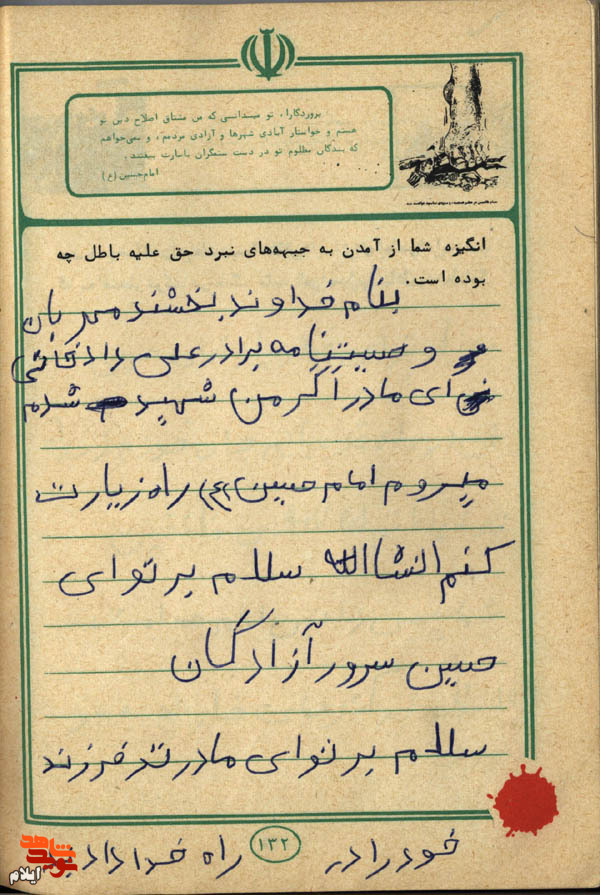 پروردگارا، تو میدانسی که من مشتاق اصلاح دین تو
هستم و خواستار آبادی شهرها و آزادی مردمم، و نمی‌خواهم
که بندگان مظلوم تو در دست ستمگران باسارت بیفتند.
امام‌حسین (ع)
انگیزه شما از آمدن به جبهه‌های نبرد حق علیه باطل چه
بوده است.
بنام خداوند بخشند مهربان
وصیتنامه برادر علی داد
ای مادر اگر من شهید شدم
میروم امام حسین (ع) راه زیارت
کنم انشاالله سلام بر تو ای
حسین سرور آزادگان
سلام بر تو ای مادر تو فرزند
خود را در راه خدا
۱۳۲
شاهد
نوید
ایلام